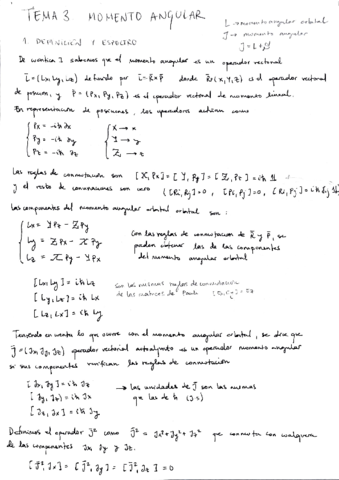 TEMA 3 MOMENTO ANGULAR
L → momento angular orbital
J → momento angular
J = L + S
1. DEFINICIÓN Y ESPECTRO
De cuántica I sabemos que el momento angular es un operador vectorial
L̄ = (Lx, Ly, Lz) definido por L̄ = R̄ × P̄ donde R̄ = (X, Y, Z) es el operador vectorial
de posición, y P̄ = (Px, Py, Pz) es el operador vectorial de momento lineal.
En representación de posiciones, los operadores actúan como
Px = -iħ ∂x X → x
Py = -iħ ∂y Y → y
Pz = -iħ ∂z Z → z
Las reglas de conmutación son [X, Px] = [Y, Py] = [Z, Pz] = iħ 1
y el resto de conmutaciones son cero ([Ri, Rj] = 0, [Pi, Pj] = 0, [Ri, Pj] = iħ δij 1)
Las componentes del momento angular orbital orbital son:
Lx = Y Pz - Z Py
Ly = Z Px - X Pz
Lz = X Py - Y Px
Con las reglas de conmutación de R̄ y P̄, se
pueden obtener las de las componentes
del momento angular orbital
[Lx, Ly] = iħ Lz
[Ly, Lz] = iħ Lx
[Lz, Lx] = iħ Ly
son las mismas reglas de conmutación
de las matrices de Pauli
Teniendo en cuenta lo que ocurre con el momento angular orbital, se dice que
J̄ = (Jx, Jy, Jz) operador vectorial autoadjunto es un operador momento angular
si sus componentes verifican las reglas de conmutación
[Jx, Jy] = iħ Jz
[Jy, Jz] = iħ Jx
[Jz, Jx] = iħ Jy
→ las unidades de J̄ son las mismas
que las de ħ (J·s)
Definimos el operador J̄² como J̄² = Jx² + Jy² + Jz² que conmuta con cualquiera
de las componentes Jx, Jy y Jz.
[J̄², Jx] = [J̄², Jy] = [J̄², Jz] = 0